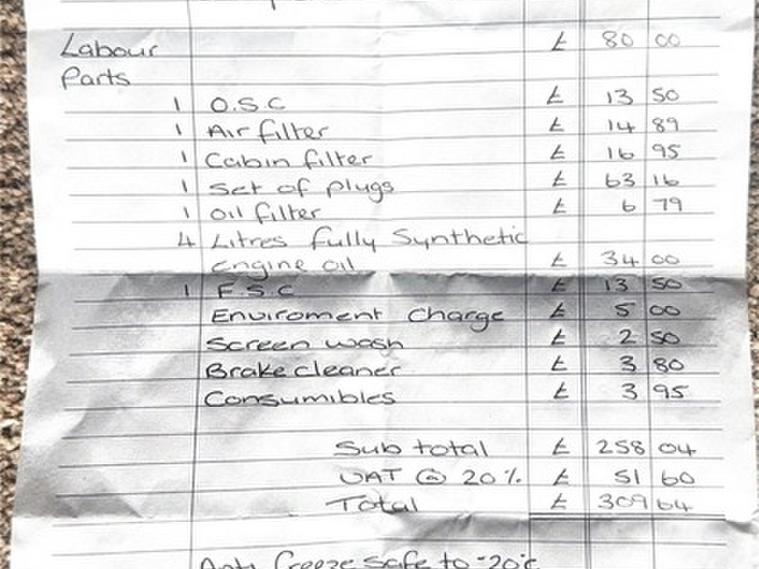 Labour £ 80 00
Parts
1 O.S.C £ 13 50
1 Air filter £ 14 89
1 Cabin filter £ 16 95
1 Set of plugs £ 63 16
1 oil filter £ 6 79
4 Litres fully Synthetic
engine oil £ 34 00
1 F.S.C £ 13 50
Enviroment Charge £ 5 00
Screen wash £ 2 50
Brake cleaner £ 3 80
Consumibles £ 3 95
Sub total £ 258 04
VAT @ 20% £ 51 60
Total £ 309 64
Anti freeze safe to -20°c